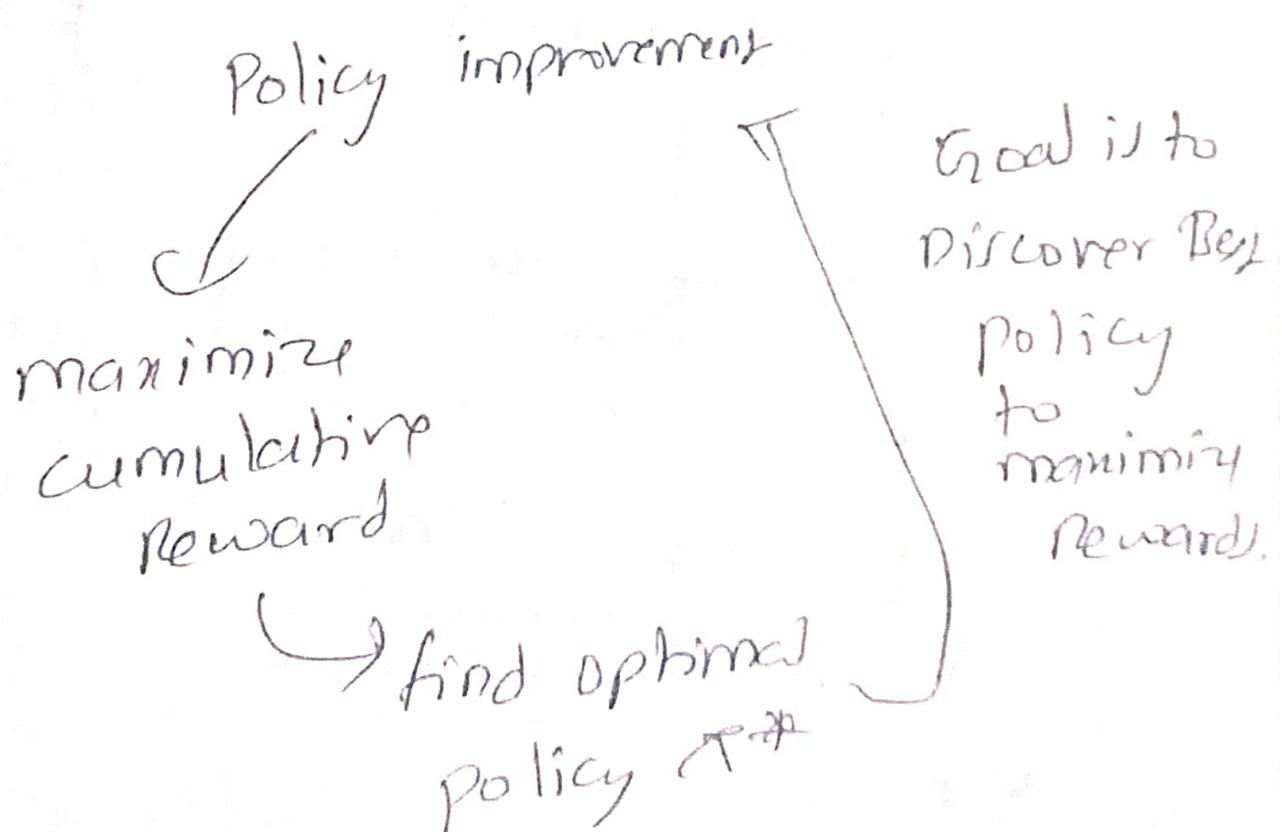 Policy improvement
maximize
cumulative
Reward
find optimal
policy π*
Goal is to
Discover Best
policy
to
maximize
Rewards.